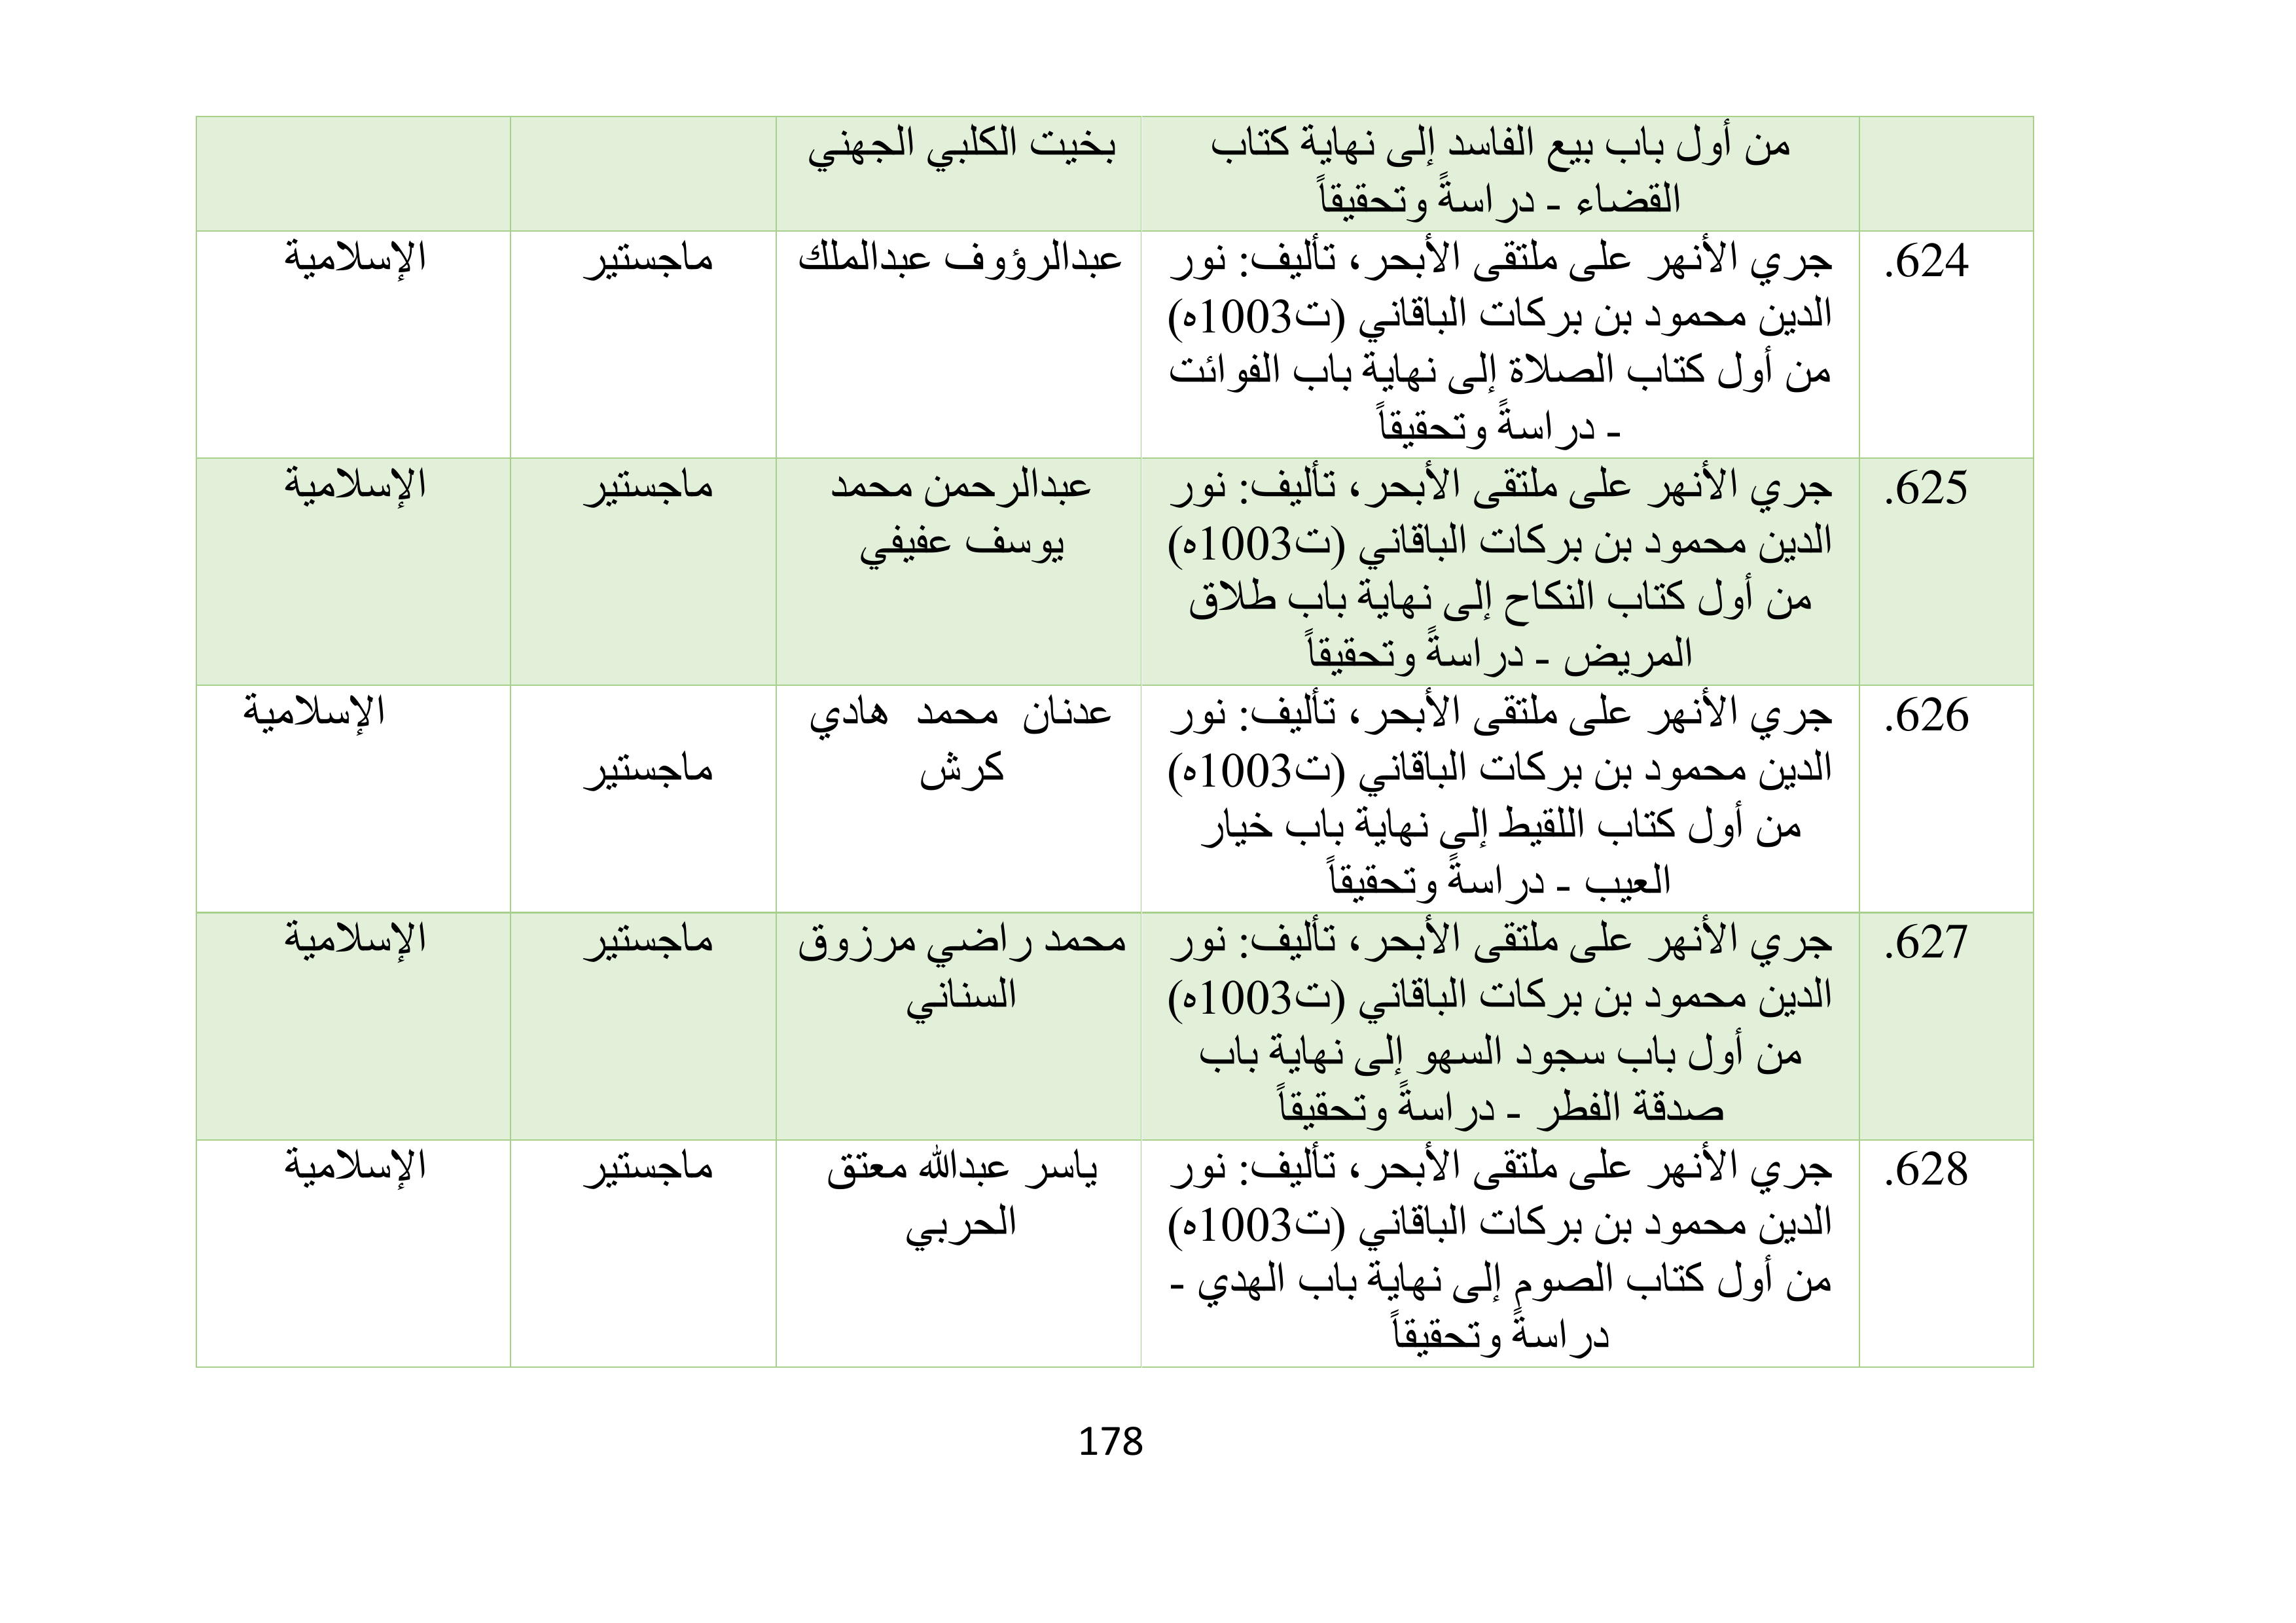 من أول باب بيع الفاسد إلى نهاية كتاب
القضاء - دراسةً وتحقيقاً
بخيت الكلبي الجهني
624.
جري الأنهر على ملتقى الأبحر، تأليف: نور
الدين محمود بن بركات الباقاني (ت1003ه)
من أول كتاب الصلاة إلى نهاية باب الفوائت
- دراسةً وتحقيقاً
عبدالرؤوف عبدالملك
ماجستير
الإسلامية
625.
جري الأنهر على ملتقى الأبحر، تأليف: نور
الدين محمود بن بركات الباقاني (ت1003ه)
من أول كتاب النكاح إلى نهاية باب طلاق
المريض - دراسةً وتحقيقاً
عبدالرحمن محمد
يوسف عفيفي
ماجستير
الإسلامية
626.
جري الأنهر على ملتقى الأبحر، تأليف: نور
الدين محمود بن بركات الباقاني (ت1003ه)
من أول كتاب اللقيط إلى نهاية باب خيار
العيب - دراسةً وتحقيقاً
عدنان محمد هادي
كرش
ماجستير
الإسلامية
627.
جري الأنهر على ملتقى الأبحر، تأليف: نور
الدين محمود بن بركات الباقاني (ت1003ه)
من أول باب سجود السهو إلى نهاية باب
صدقة الفطر - دراسةً وتحقيقاً
محمد راضي مرزوق
السناني
ماجستير
الإسلامية
628.
جري الأنهر على ملتقى الأبحر، تأليف: نور
الدين محمود بن بركات الباقاني (ت1003ه)
من أول كتاب الصوم إلى نهاية باب الهدي -
دراسةً وتحقيقاً
ياسر عبدالله معتق
الحربي
ماجستير
الإسلامية
178